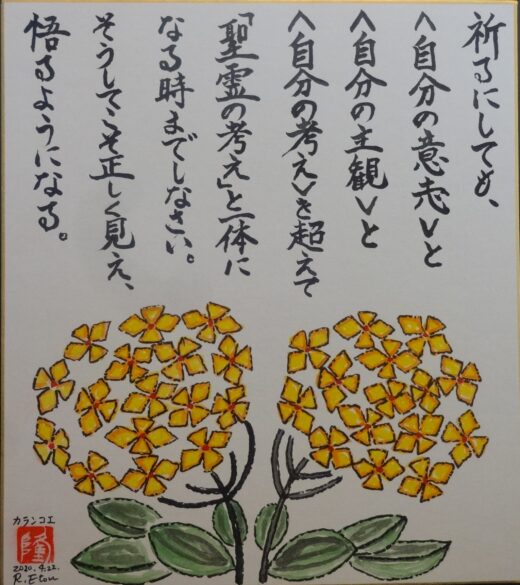 祈るにしても、
〈自分の意志〉と
〈自分の主観〉と
〈自分の考え〉を超えて
「聖霊の考え」と一体に
なる時までしなさい。
そうしてこそ正しく見え、
悟るようになる。
カランコエ
隆
2020.4.22.
R.Etou